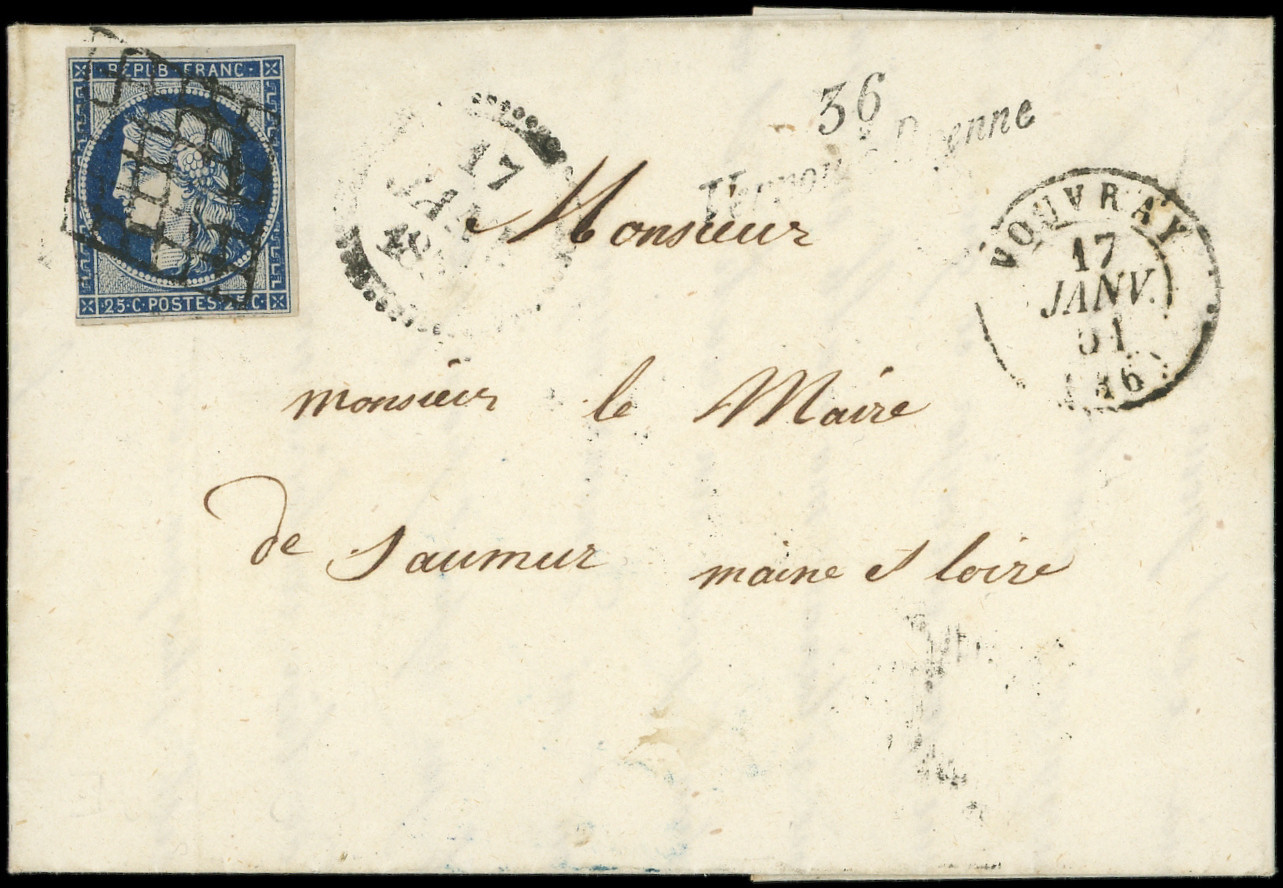 REPUB FRANC
25·C·POSTES·25·C
17
JANV
36
Vernou s Brenne
VOUVRAY
17
JANV.
51
(36)
Monsieur
monsieur le Maire
de Saumur maine et loire